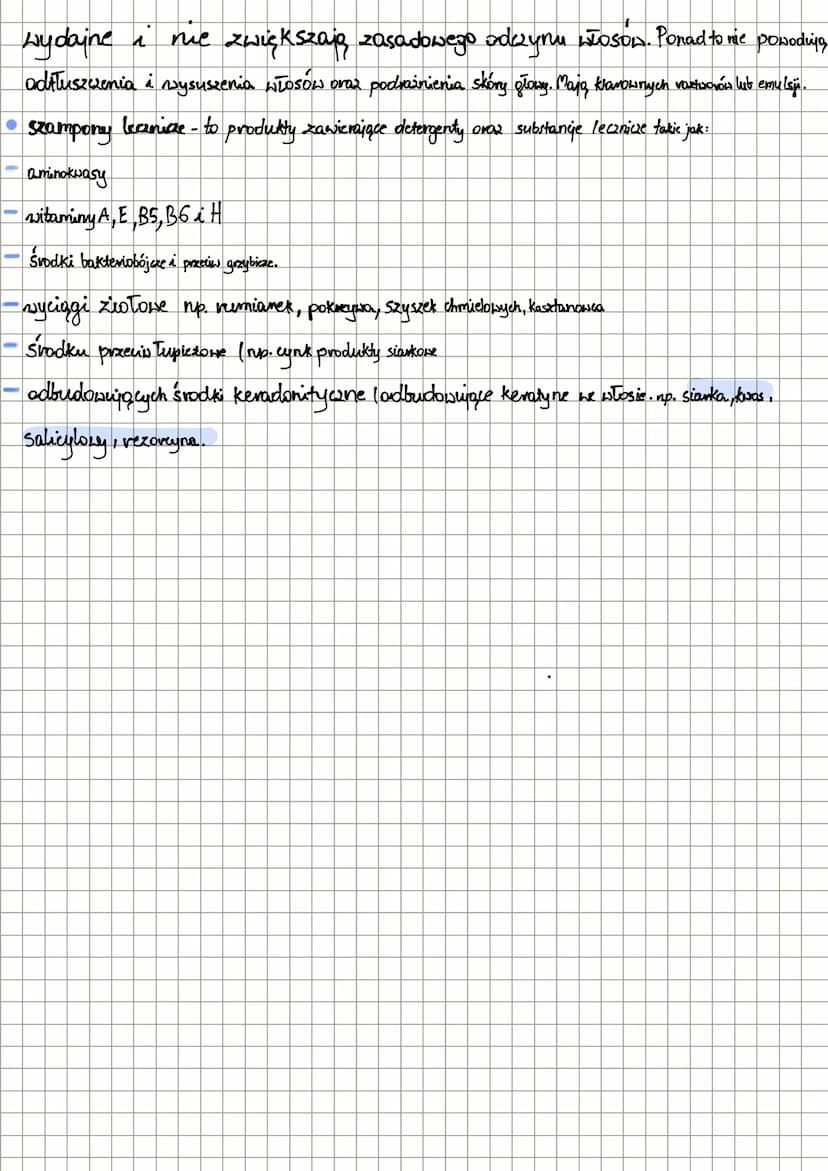 wydajne i nie zwiększają zasadowego odczynu włosów. Ponad to nie powodują
odtłuszczenia i wysuszenia włosów oraz podrażnienia skóry głowy. Mają klarownych roztworów lub emulsji.
• szampony lecznicze - to produkty zawierające detergenty oraz substancje lecznicze takie jak:
- aminokwasy
- witaminy A, E, B5, B6 i H
- Środki bakteriobójcze i przeciw grzybicze.
- wyciągi ziołowe np. rumianek, pokrzywa, szyszek chmielowych, kasztanowca
- Środku przeciw łupieżowe (np. cynk produkty siarkowe
- odbudowujących środki keradonityczne (odbudowujące keratyne we włosie. np. siarka, kwas,
salicylowy, rezorcyna.